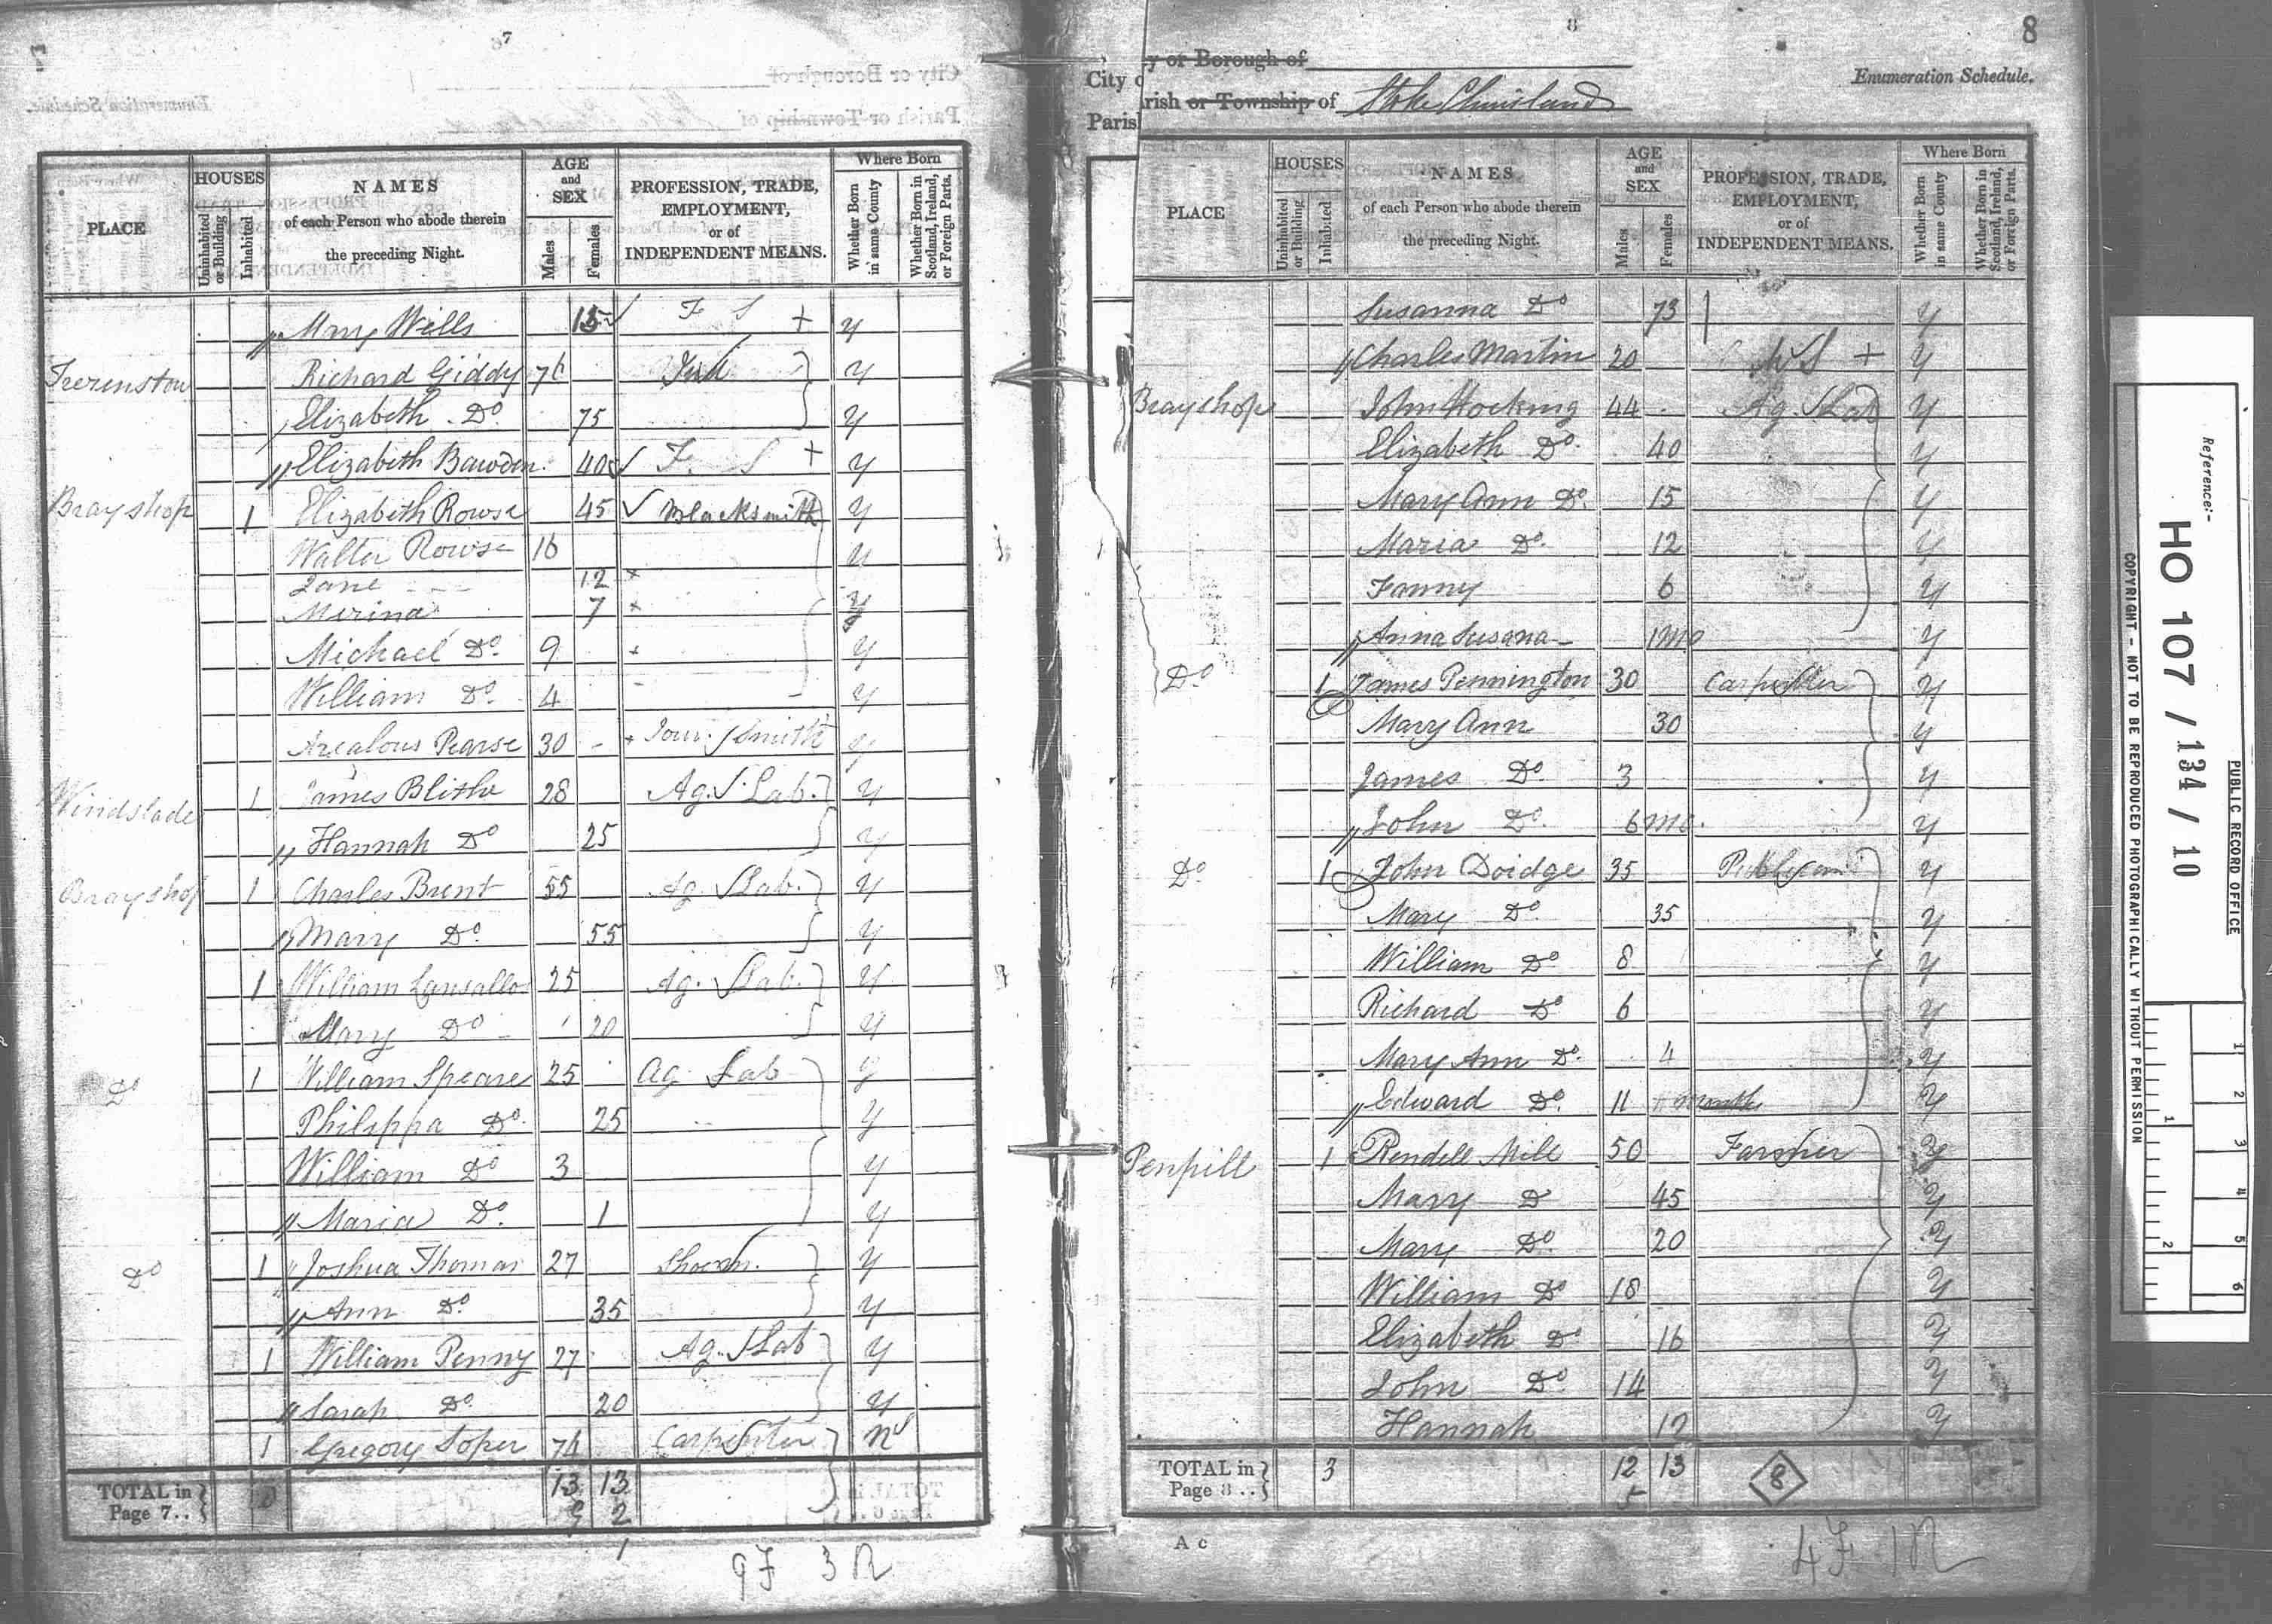 7
City or Borough of
Parish or Township of
Enumeration Schedule.
PLACE
HOUSES
Uninhabited or Building
Inhabited
NAMES
of each Person who abode therein
the preceding Night.
AGE
and
SEX
Males
Females
PROFESSION, TRADE,
EMPLOYMENT,
or of
INDEPENDENT MEANS.
Where Born
Whether Born in same County
Whether Born in Scotland, Ireland, or Foreign Parts.
Mary Wills 15 F S + y
Richard Giddy 76 Ind y
Elizabeth Do 75 y
Elizabeth Bawden 40 F S + y
Brayshop 1 Elizabeth Rowse 45 Blacksmith y
Walter Rowse 16 y
Jane 12
Merina 7 y
Michael Do 9 y
William Do 4 y
Pearse 30 Jour. Smith y
Windslade 1 James Blithe 28 Ag. Lab. y
Hannah Do 25 y
Brayshop 1 Charles Brent 55 Ag Lab. y
Mary Do 55 y
1 William 25 Ag. Lab. y
Mary Do 20 y
Do 1 William Speare 25 Ag Lab y
Philippa Do 25 y
William Do 3 y
Maria Do 1 y
Do 1 Joshua Thomas 27 Shoem. y
Ann Do 35 y
1 William Penny 27 Ag. Lab y
Sarah Do 20 y
1 Gregory Soper 74 Carpenter N
TOTAL in
Page 7..
13 13
9 2
1
9F 3N
8
8
City o
Paris
y or Borough of
rish or Township of Stoke Climsland
Enumeration Schedule.
PLACE
HOUSES
Uninhabited or Building
Inhabited
NAMES
of each Person who abode therein
the preceding Night.
AGE
and
SEX
Males
Females
PROFESSION, TRADE,
EMPLOYMENT,
or of
INDEPENDENT MEANS.
Where Born
Whether Born in same County
Whether Born in Scotland, Ireland, or Foreign Parts.
Susanna Do 73 y
Charles Martin 20 M S + y
Brayshop John Hocking 44 Ag. Lab y
Elizabeth Do 40 y
Mary Ann Do 15 y
Maria Do 12 y
Fanny 6 y
Anna Susana 1 mo y
Do 1 James Pennington 30 Carpenter y
Mary Ann 30 y
James Do 3 y
John Do 6 mo. y
Do 1 John Doidge 35 Publican y
Mary Do 35 y
William Do 8 y
Richard Do 6 y
Mary Ann Do 4 y
Edward Do 11 months y
Penpill 1 Rendell Mill 50 Farmer y
Mary D 45 y
Mary Do 20 y
William Do 18 y
Elizabeth Do 16 y
John Do 14 y
Hannah 12 y
TOTAL in
Page 8..
3 12 13
5
8
A c
4F 1N
Reference:-
HO 107 / 134 / 10
PUBLIC RECORD OFFICE
COPYRIGHT - NOT TO BE REPRODUCED PHOTOGRAPHICALLY WITHOUT PERMISSION
1 2 3 4 5 6
1 2